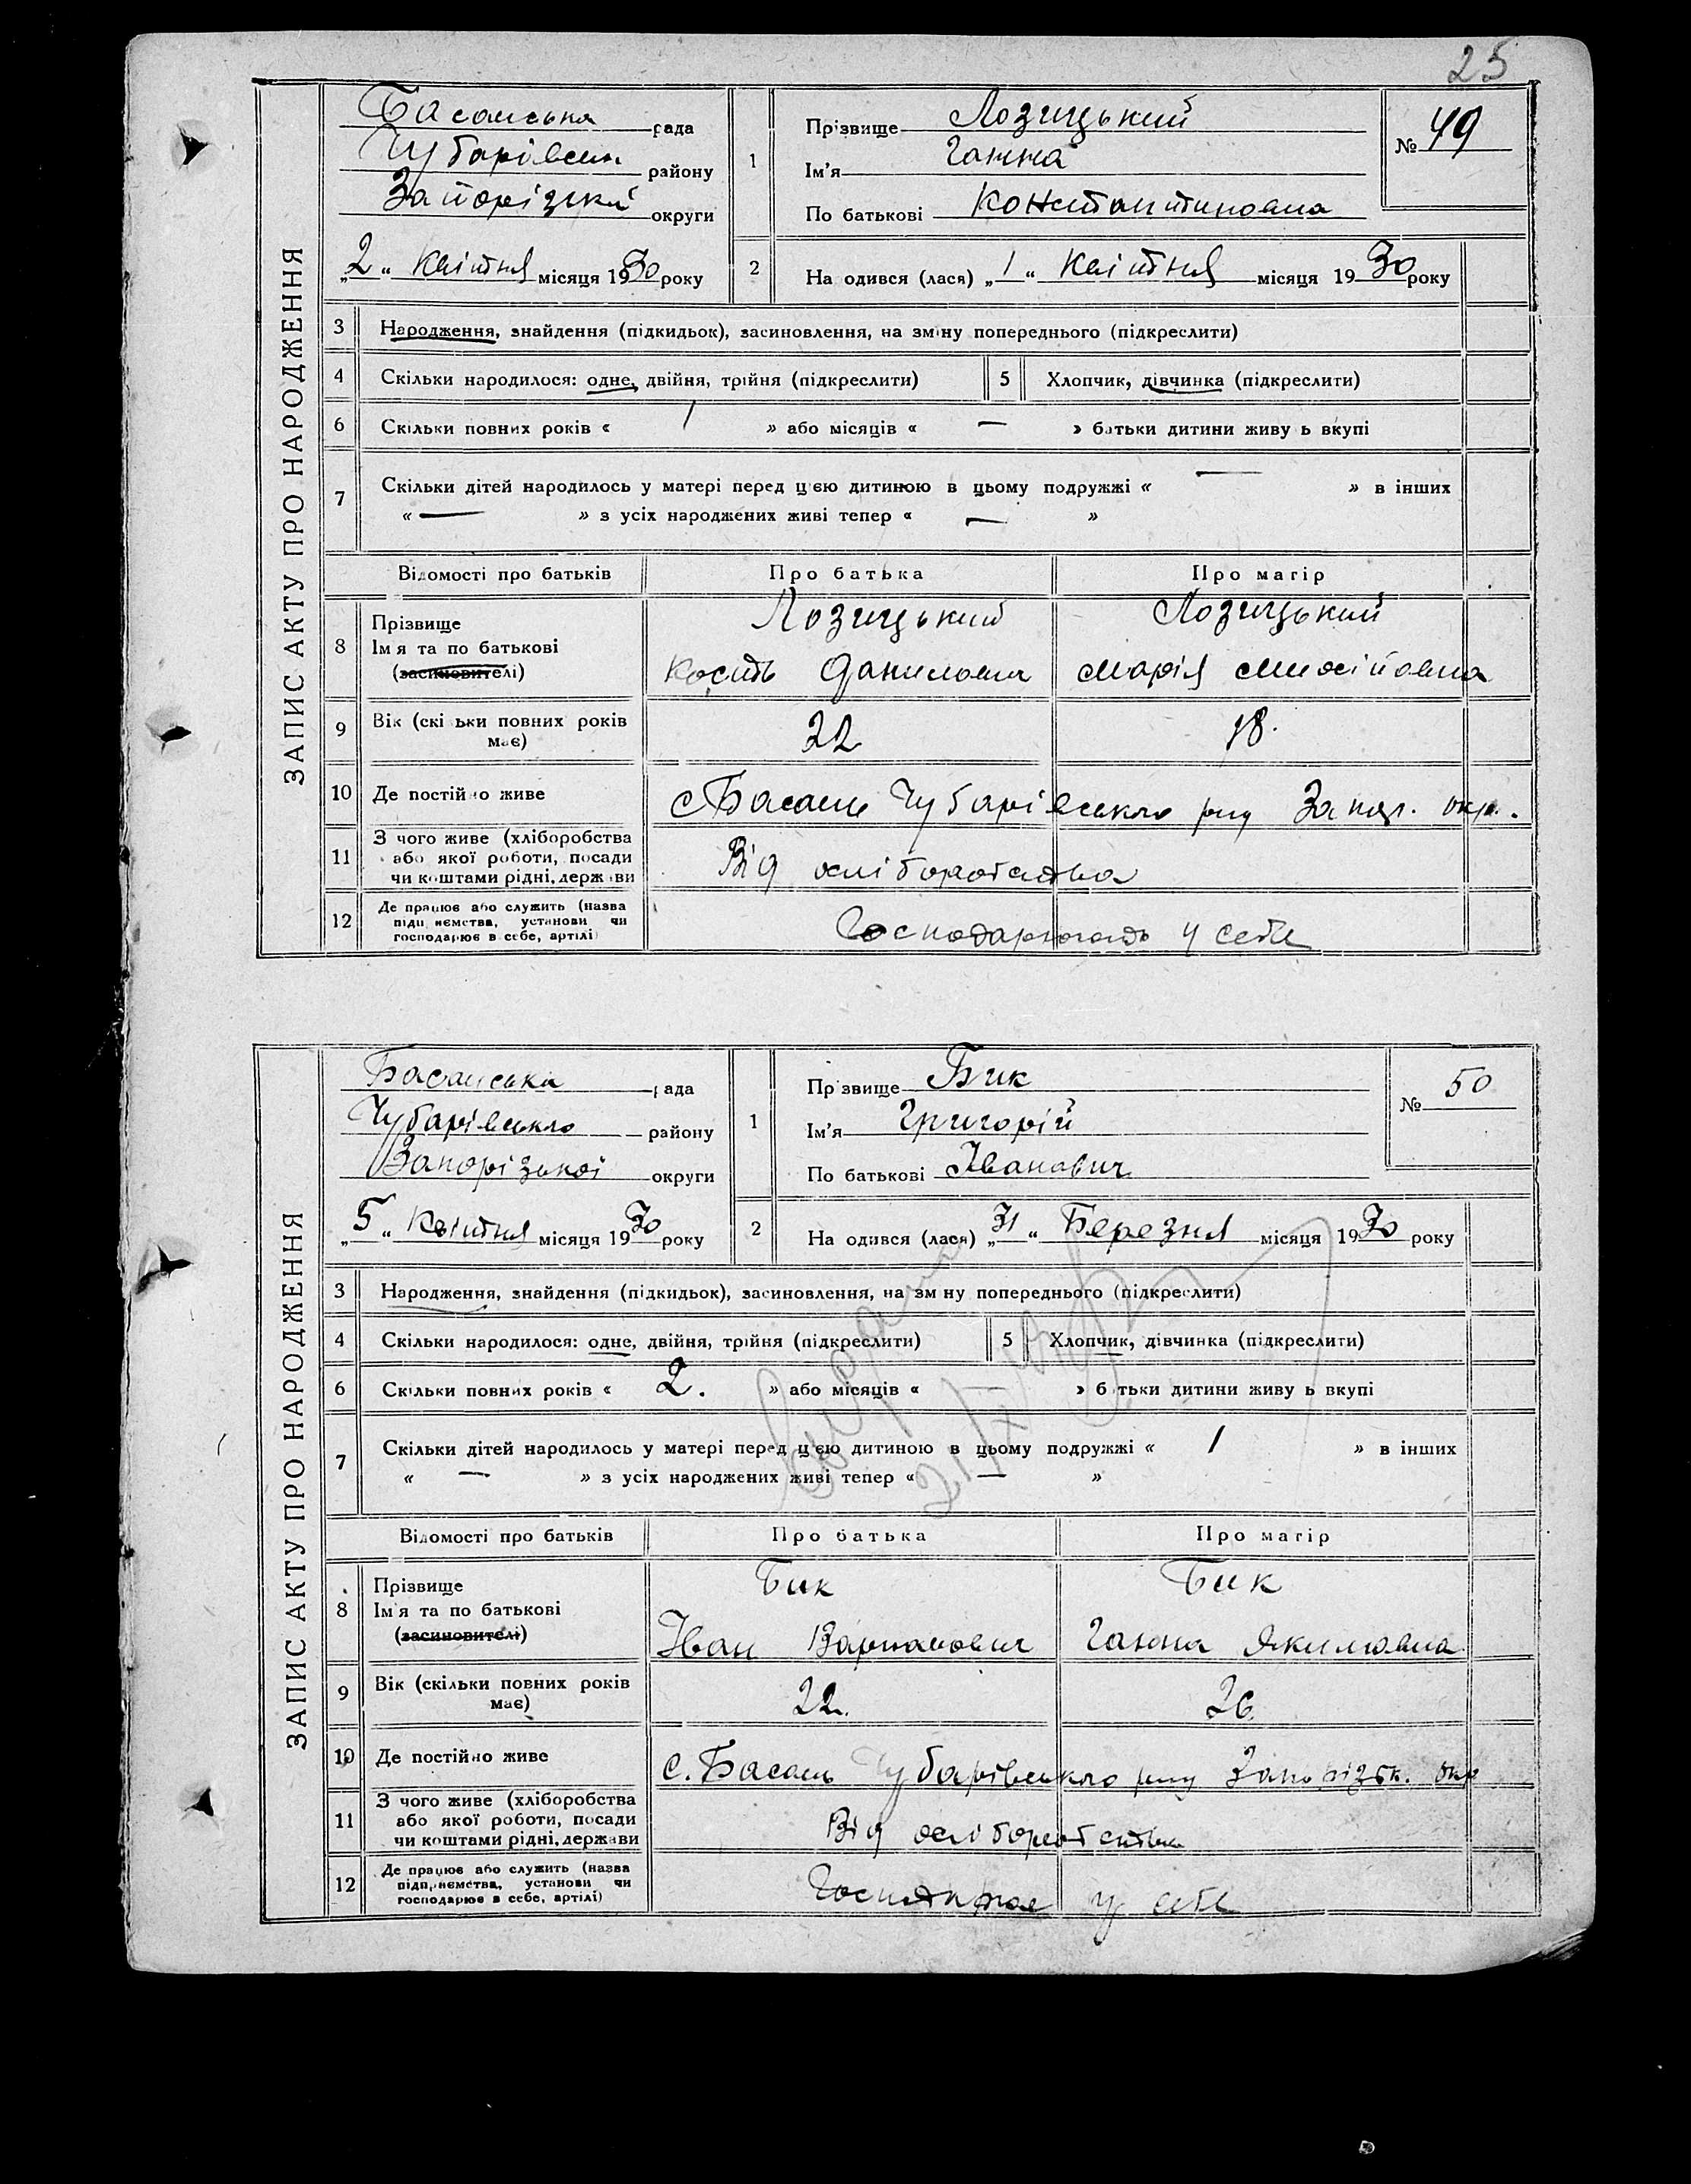 25
ЗАПИС АКТУ ПРО НАРОДЖЕННЯ
Басанська рада
Чубарівськ району
Запорізької округи
„2“ Квітня місяця 1930 року
1 Прізвище Лозицький
Ім'я Ганна
По батькові Константиновна
№ 49
2 На одився (лася) „1“ Квітня місяця 1930 року
3 Народження, знайдення (підкидьок), засиновлення, на зміну попереднього (підкреслити)
4 Скільки народилося: одне, двійня, трійня (підкреслити) 5 Хлопчик, дівчинка (підкреслити)
6 Скільки повних років « 1 » або місяців « — » батьки дитини живу ь вкупі
7 Скільки дітей народилось у матері перед цією дитиною в цьому подружжі « — » в інших
« — » з усіх народжених живі тепер « — »
Відомості про батьків Про батька Про матір
8 Прізвище Лозицький Лозицький
Ім я та по батькові
(засиновителі) Кость Данилович Марія
9 Вік (скі ьки повних років має) 22 18.
10 Де постійно живе с Басань Чубарівського р-ну Запор. окр.
11 З чого живе (хліборобства
або якої роботи, посади
чи коштами рідні, держави Від хліборобства
12 Де працює або служить (назва
підприємства, установи чи
господарює в себе, артілі) Господарюють у себе
ЗАПИС АКТУ ПРО НАРОДЖЕННЯ
Басанська рада
Чубарівського району
Запорізької округи
„5“ Квітня місяця 1930 року
1 Прізвище Бик
Ім'я Григорій
По батькові Іванович
№ 50
2 На одився (лася) „31“ Березня місяця 1930 року
3 Народження, знайдення (підкидьок), засиновлення, на зм ну попереднього (підкреслити)
4 Скільки народилося: одне, двійня, трійня (підкреслити) 5 Хлопчик, дівчинка (підкреслити)
6 Скільки повних років « 2. » або місяців « » б тьки дитини живу ь вкупі
7 Скільки дітей народилось у матері перед цією дитиною в цьому подружжі « 1 » в інших
« — » з усіх народжених живі тепер « — »
Відомості про батьків Про батька Про матір
8 Прізвище Бик Бик
Ім'я та по батькові
(засиновителі) Іван Варнавович Ганна Якимовна
9 Вік (скільки повних років має) 22. 26.
10 Де постійно живе с. Басань Чубарівського р-ну Запорізьк. окр
11 З чого живе (хліборобства
або якої роботи, посади
чи коштами рідні, держави Від хліборобства
12 Де працює або служить (назва
підприємства, установи чи
господарює в себе, артілі) у себе